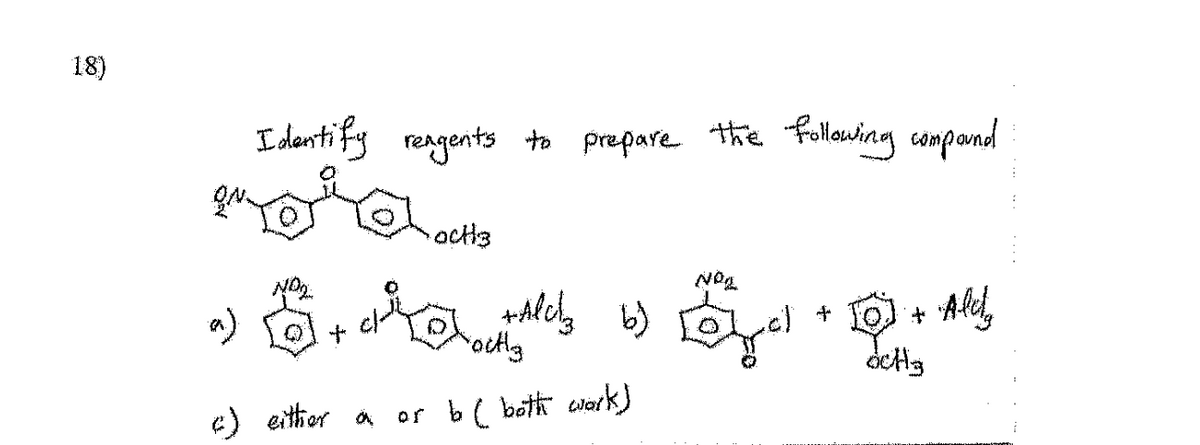 18)
Identify reagents to prepare the following compound
O
O2N
OCH3
NO2 O NO2
a) + Cl +AlCl3 b) Cl + + AlCl3
OCH3 O OCH3
c) either a or b ( both work)